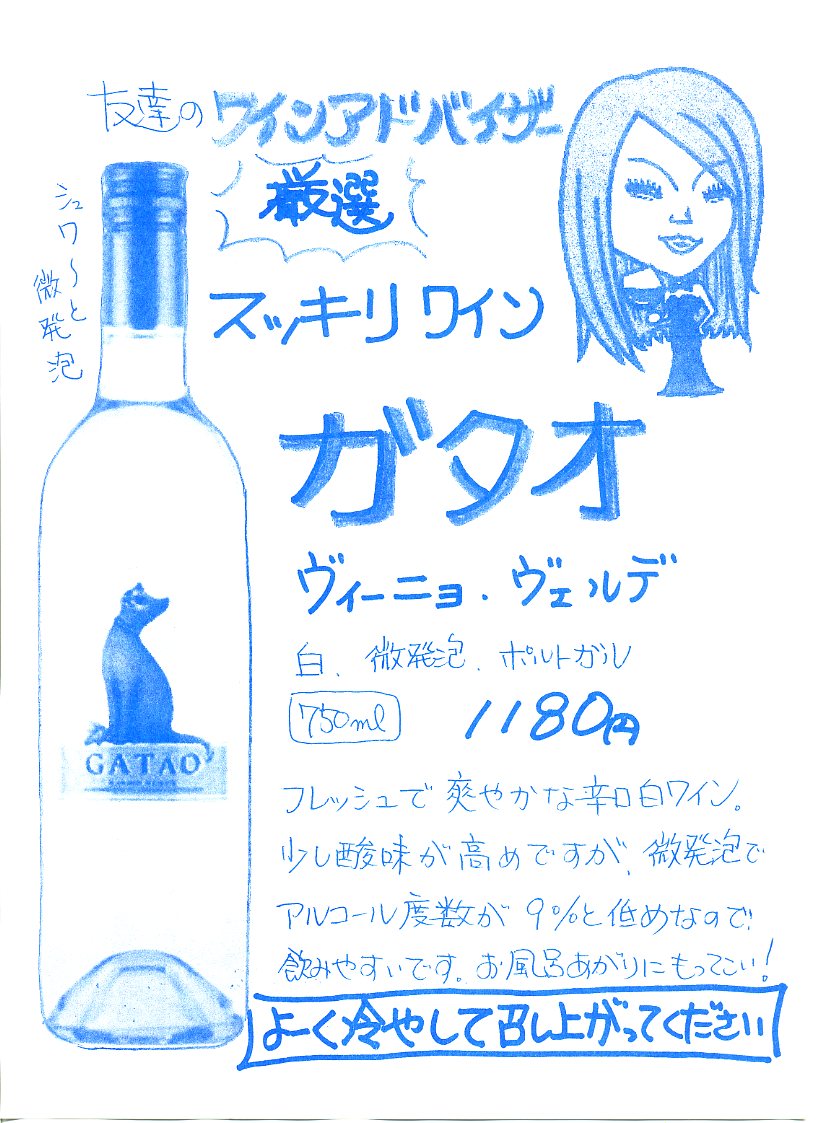 友達のワインアドバイザー
厳選
シュワ〜と
微発泡
スッキリワイン
ガタオ
ヴィーニョ・ヴェルデ
白、微発泡、ポルトガル
750ml 1180円
GATAO
フレッシュで爽やかな辛口白ワイン。
少し酸味が高めですが、微発泡で
アルコール度数が9%と低めなので、
飲みやすいです。お風呂あがりにもってこい!
よーく冷やして召し上がってください